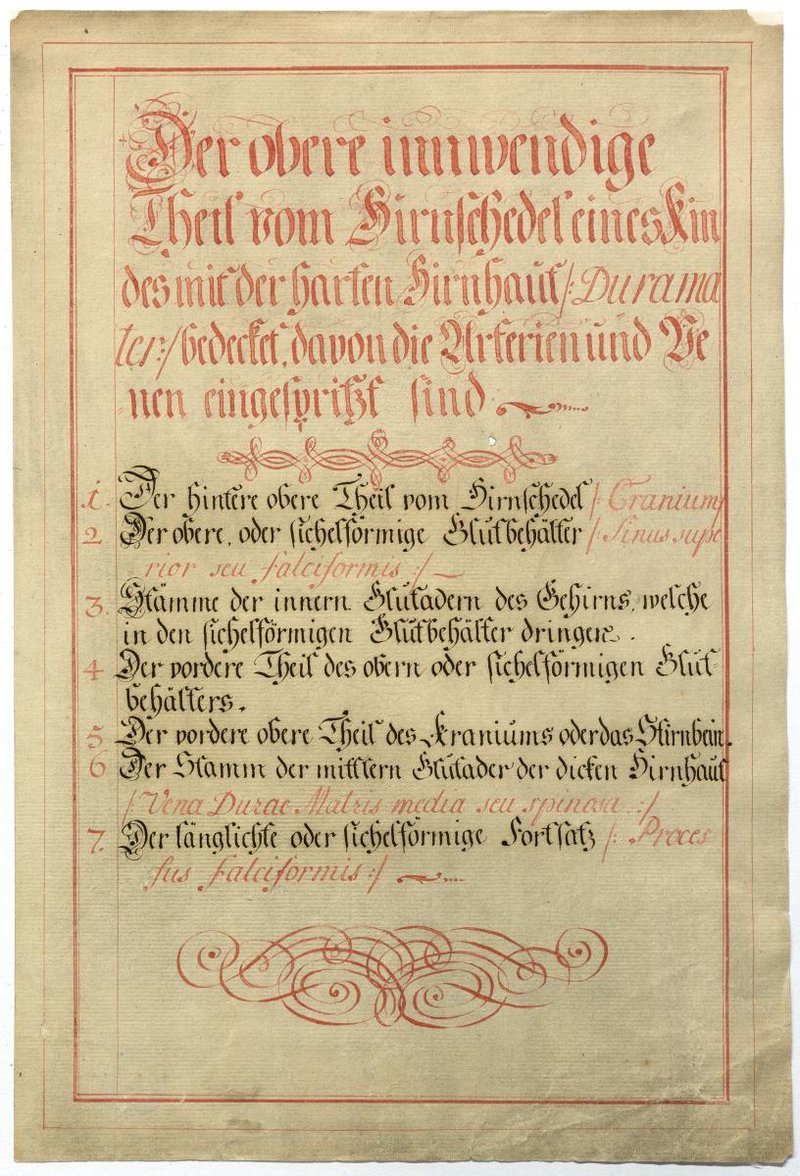 Der obere innwendige
Theil vom Hirnschedel eines Kin
des mit der harten Hirnhaut /: Dura ma
ter :/ bedecket, davon die Arterien und Ve
nen eingespritzt sind.
1. Der hintere obere Theil vom Hirnschedel /: Cranium :/
2. Der obere, oder sichelförmige Blutbehälter /: Sinus supe
rior seu falciformis :/
3. Stämme der innern Blutadern des Gehirns, welche
in den sichelförmigen Blutbehälter dringen.
4 Der vordere Theil des obern oder sichelförmigen Blut-
behälters.
5 Der vordere obere Theil des Kraniums oder das Stirnbein.
6 Der Stamm der mittlern Blutader der dicken Hirnhaut
/: Vena Durae Matris media seu spinosa :/
7. Der länglichte oder sichelförmige Fortsatz /: Proces
sus falciformis :/